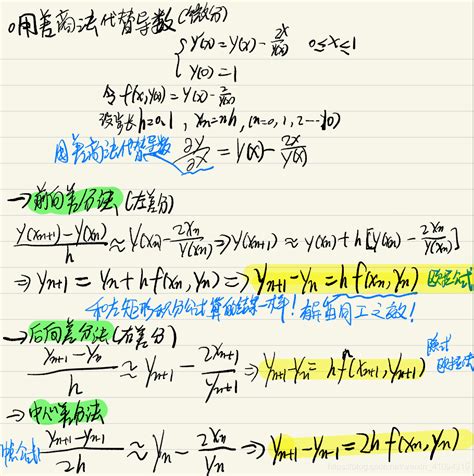 用差商法代替导数(微分)
{ y'(x) = y(x) - 2x/y(x) 0≤x≤1
y(0) = 1
令 f(x,y(x)) = y(x) - 2x/y(x)
设步长h=0.1, xn=nh, (n=0,1,2---10)
用差商法代替导数 ∂y/∂x = y(x) - 2x/y(x)
→前向差分法 (左差分)
(y(xn+1)-y(xn))/h ≈ y(xn) - 2xn/y(xn) ⇒ y(xn+1) ≈ y(xn) + h[y(xn) - 2xn/y(xn)]
⇒ yn+1 = yn + hf(xn,yn) ⇒ yn+1-yn = hf(xn,yn) 欧拉公式
和左矩形积分公式算的结果一样! 有异曲同工之效!
→后向差分法(右差分)
(yn+1-yn)/h ≈ yn+1 - 2xn+1/yn+1 ⇒ yn+1-yn = hf(xn+1,yn+1) 隐式欧拉法
→中心差分法
(yn+1-yn-1)/2h ≈ yn - 2xn/yn ⇒ yn+1-yn-1 = 2hf(xn,yn)